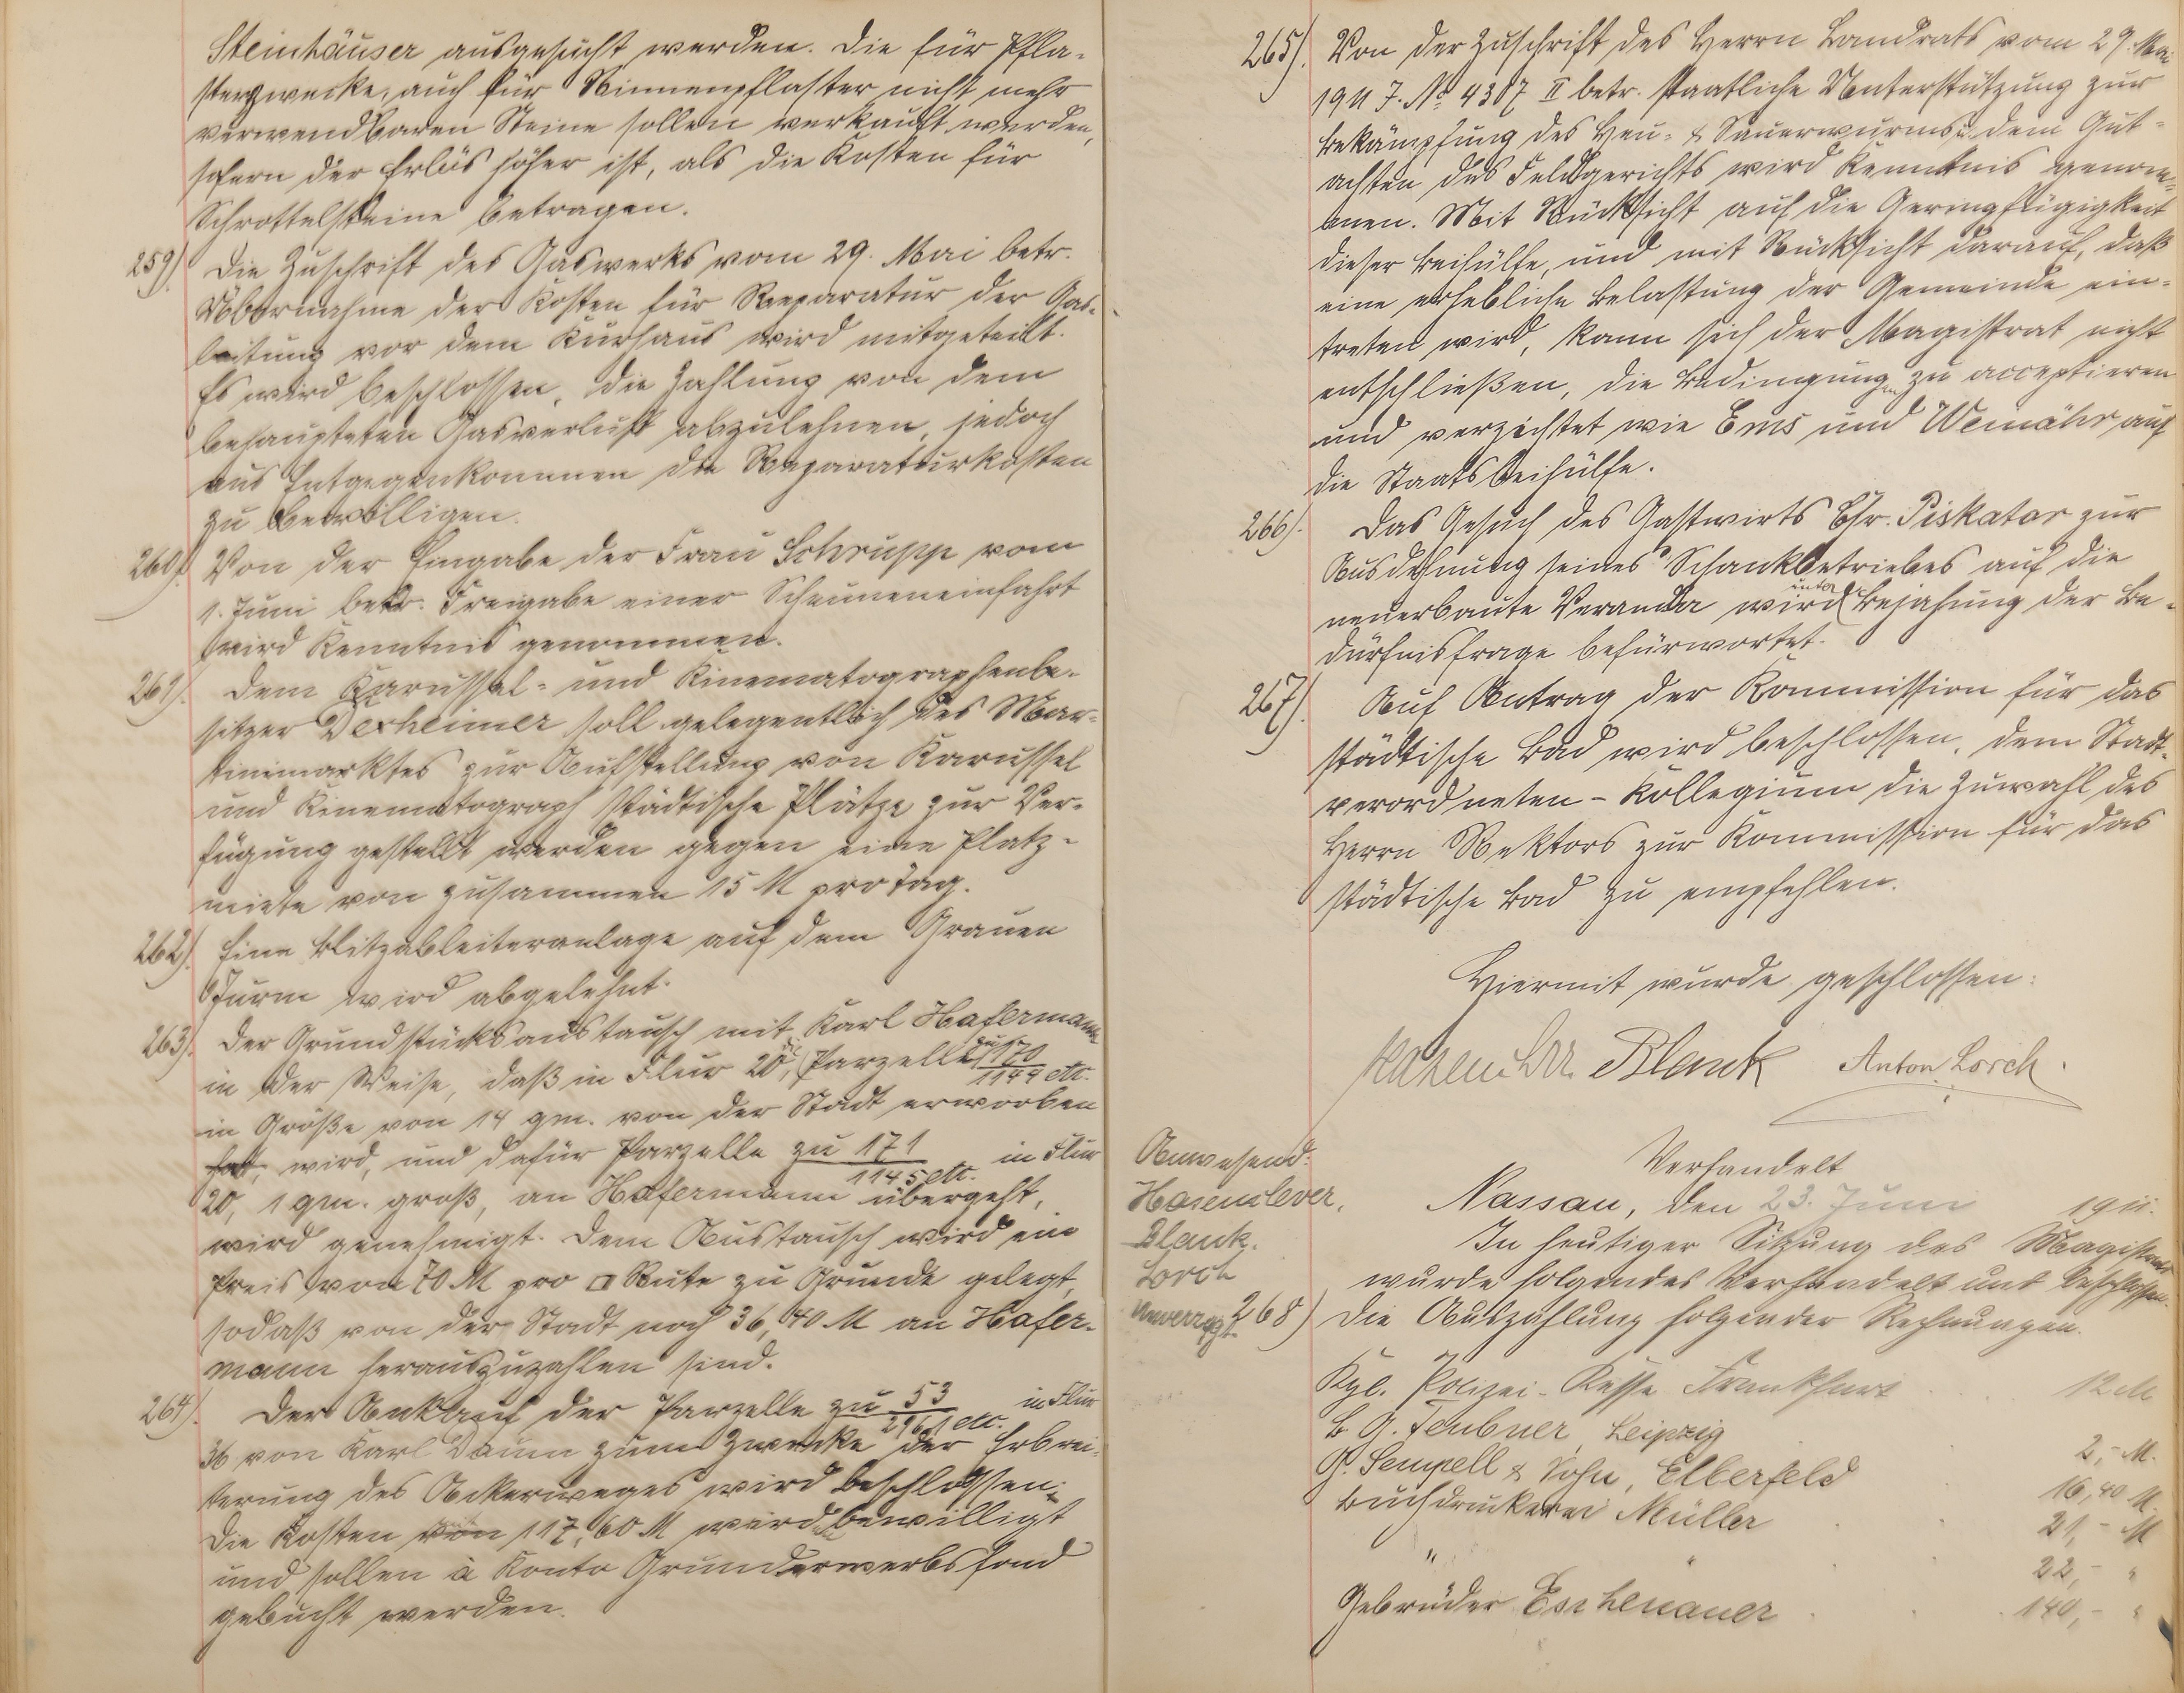 Steinhäuser ausgesucht werden. Die für Pfla-
sterzwecke, auch für Rinnenpflaster nicht mehr
verwendbaren Steine sollen verkauft werden,
sofern der Erlös höher ist, als die Kosten für
Schrottelsteine betragen.
259). Die Zuschrift des Gaswerks vom 29. Mai betr.
Übernahme der Kosten für Reparatur der Gas-
leitung vor dem Kurhaus wird mitgeteilt.
Es wird beschlossen, die Zahlung von dem
behaupteten Gasverlust abzulehnen, jedoch
aus Entgegenkommen die Reparaturkosten
zu bewilligen.
260). Von der Eingabe der Frau Schrupp vom
1. Juni betr. Freigabe einer Scheuneneinfahrt
wird Kenntnis genommen.
261). Dem Karussel- und Kinematographenbe-
sitzer Dexheimer soll gelegentlich des Mar-
tinimarktes zur Aufstellung von Karussel
und Kinematograph städtische Plätze zur Ver-
fügung gestellt werden gegen eine Platz-
miete von zusammen 15 M pro Tag.
262). Eine Blitzableiteranlage auf dem Grauen
Turm wird abgelehnt.
263). Der Grundstücksaustausch mit Karl Hafermann
in der Weise, daß in Flur 20, Parzelle zu 170
1144 etc.
in Größe von 14 qm. von der Stadt erworben
hat, wird, und dafür Parzelle zu 171 in Flur
1145 etc.
20, 1 qm. groß, an Hafermann übergeht,
wird genehmigt. Dem Austausch wird ein
Preis von 70 M pro □ Rute zu Grunde gelegt,
sodaß von der Stadt noch 36,40 M an Hafer-
mann herauszuzahlen sind.
264). Der Ankauf der Parzelle zu 53 in Flur
2961 etc.
36 von Karl Daum zum Zwecke der Erbrei-
terung des Ackerweges wird beschlossen;
die Kosten von 117,60 M wird bewilligt
und sollen à Konto Grunderwerbsfond
gebucht werden.
265). Von der Zuschrift des Herrn Landrats vom 29. Mai
1911 J. No 4307 II betr. staatliche Unterstützung zur
Bekämpfung des Heu- & Sauerwurms u. dem Gut-
achten des Feldgerichts wird Kenntnis genom-
men. Mit Rücksicht auf die Geringfügigkeit
dieser Beihülfe, und mit Rücksicht darauf, daß
eine erhebliche Belastung der Gemeinde ein-
treten wird, kann sich der Magistrat nicht
entschließen, die Bedingungen zu acceptieren
und verzichtet wie Ems und Weinähr auf
die Staatsbeihülfe.
266). Das Gesuch des Gastwirts Chr. Piskator zur
Ausdehnung seines Schankbetriebes auf die
neuerbaute Veranda wird unter Bejahung der Be-
dürfnisfrage befürwortet.
267). Auf Antrag der Kommission für das
städtische Bad wird beschlossen, dem Stadt-
verordneten-Kollegium die Zuwahl des
Herrn Rektors zur Kommission für das
städtische Bad zu empfehlen.
Hiermit wurde geschlossen:
Hasenclever Blank Anton Lorch.
Anwesend:
Hasenclever,
Blank.
Lorch
Unverzagt
Verhandelt
Nassau, den 23. Juni 1911.
In heutiger Sitzung des Magistrats
wurde folgendes verhandelt und beschlossen.
268) Die Auszahlung folgender Rechnungen.
Kgl. Polizei-Kasse Frankfurt 12 M
B. G. Teubner, Leipzig 2,- M.
P. Sempell & Sohn, Elberfeld 16,40 M.
Buchdruckerei Müller 21,- M
" " 22,- "
Gebrüder Eschenauer 140,- "